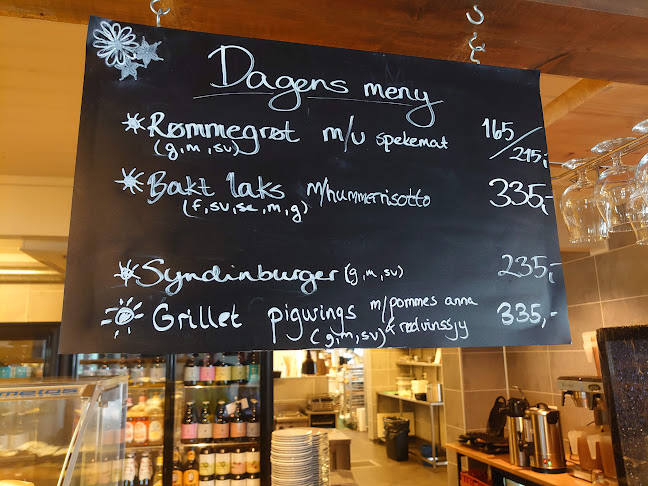 Dagens meny
Rømmegrøt m/u spekemat 165/215,-
(g,m,sv)
Bakt laks m/hummerrisotto 335,-
(f,sv,se,m,g)
Syndinburger (g,m,sv) 235,-
Grillet pigwings m/pommes anna 335,-
(g,m,sv) & rødvinssjy